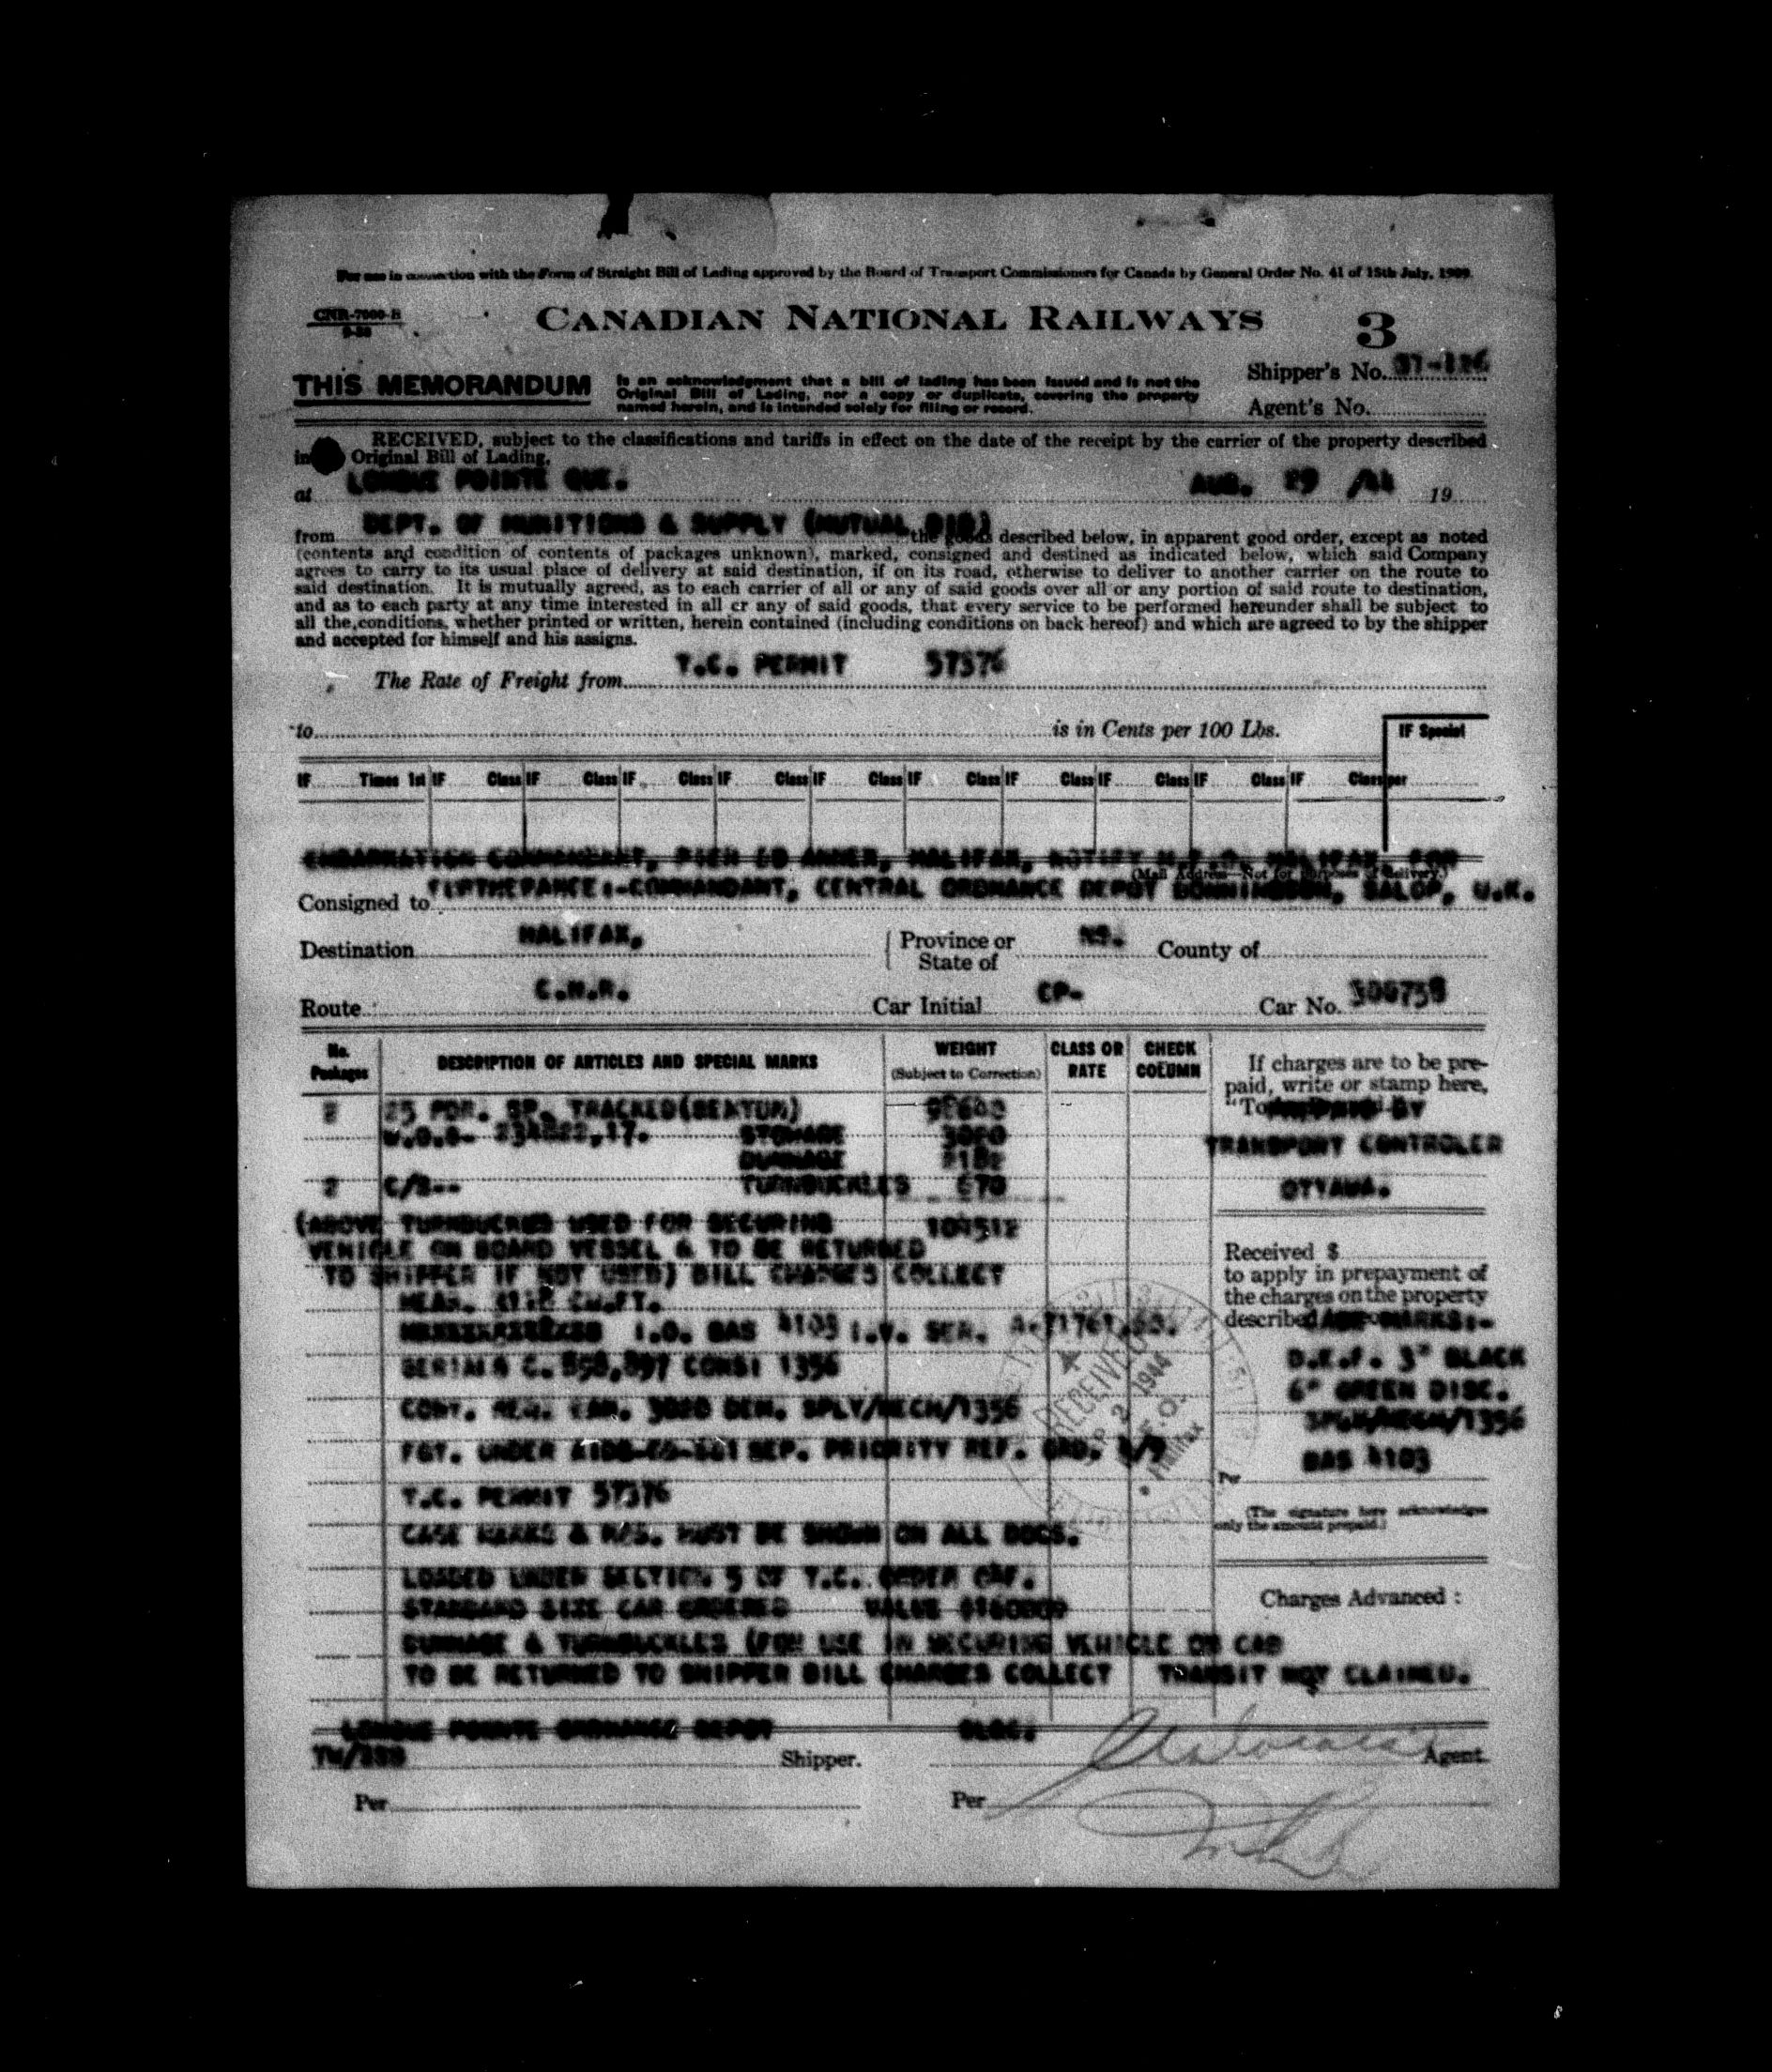 For use in connection with the Form of Straight Bill of Lading approved by the Board of Transport Commissioners for Canada by General Order No. 41 of 15th July, 1909.
CNR-7000-B
CANADIAN NATIONAL RAILWAYS 3
Shipper's No.
THIS MEMORANDUM
is an acknowledgment that a bill of lading has been issued and is not the
Original Bill of Lading, nor a copy or duplicate, covering the property
named herein, and is intended solely for filing or record.
Agent's No.
RECEIVED, subject to the classifications and tariffs in effect on the date of the receipt by the carrier of the property described
in Original Bill of Lading,
at LONGUE POINTE QUE. AUG. 29 /44 19
from DEPT. OF MUNITIONS & SUPPLY (MUTUAL AID) the goods described below, in apparent good order, except as noted
(contents and condition of contents of packages unknown), marked, consigned and destined as indicated below, which said Company
agrees to carry to its usual place of delivery at said destination, if on its road, otherwise to deliver to another carrier on the route to
said destination. It is mutually agreed, as to each carrier of all or any of said goods over all or any portion of said route to destination,
and as to each party at any time interested in all or any of said goods, that every service to be performed hereunder shall be subject to
all the conditions, whether printed or written, herein contained (including conditions on back hereof) and which are agreed to by the shipper
and accepted for himself and his assigns.
The Rate of Freight from T.C. PERMIT 57376
to is in Cents per 100 Lbs. IF Special
IF Times 1st IF Class IF Class IF Class IF Class IF Class IF Class IF Class IF Class IF Class IF Class per
EMBARKATION COMMANDANT, PIER HALIFAX, NOTIFY HALIFAX, FOR
(Mail Address—Not for purposes of Delivery.)
Consigned to FURTHERANCE:-COMMANDANT, CENTRAL ORDNANCE DEPOT DONNINGTON, SALOP, U.K.
Destination HALIFAX, Province or State of NS. County of
Route C.N.R. Car Initial CP- Car No.
No. Packages DESCRIPTION OF ARTICLES AND SPECIAL MARKS WEIGHT (Subject to Correction) CLASS OR RATE CHECK COLUMN
If charges are to be pre-
paid, write or stamp here,
2 25 PDR. SP. TRACKED(SEXTON)
STOWAGE
TRANSPORT CONTROLER
DUNNAGE
2 C/S-- TURNBUCKLES 670
OTTAWA.
(ABOVE TURNBUCKLES USED FOR SECURING
VEHICLE ON BOARD VESSEL & TO BE RETURNED
TO SHIPPER IF NOT USED) BILL CHARGES COLLECT
Received $
to apply in prepayment of
the charges on the property
described CASE MARKS:-
MEAS. CU.FT.
I.O. DAS 4103 I.V. SER.
SERIALS C. CONSI 1356
D.E.F. 3" BLACK
6" GREEN DISC.
CONT. DEM. SPLY/MECH/1356
SPLY/MECH/1356
FGT. UNDER SEP. PRIORITY REF.
DAS 4103
RECEIVED
SEP 2 1944
Halifax
Per
T.C. PERMIT 57376
(The signature here acknowledges
only the amount prepaid.)
CASE MARKS & NOS. MUST BE SHOWN ON ALL DOCS.
LOADED UNDER SECTION 5 OF T.C. ORDER
STANDARD SIZE CAR ORDERED VALUE
Charges Advanced :
DUNNAGE & TURNBUCKLES (FOR USE IN SECURING VEHICLE ON CAR
TO BE RETURNED TO SHIPPER BILL CHARGES COLLECT TRANSIT NOT CLAIMED.
LONGUE POINTE ORDNANCE DEPOT
Shipper. Agent
Per Per